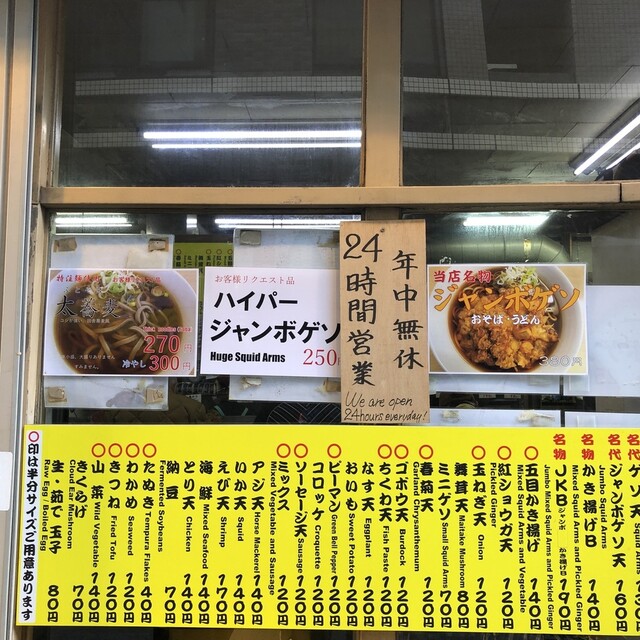 特注麺
太蕎麦
270円
冷やし 300円
すみません。
お客様リクエスト品
ハイパー
ジャンボゲソ
Huge Squid Arms 250
年中無休
24時間営業
We are open
24hours everyday!
当店名物
ジャンボゲソ
おそば・うどん
名代 ゲソ天
名代 ジャンボゲソ天 Jumbo Squid Arms
名物 かき揚げB Mixed Squid Arms and Pickled Ginger 140円
名物 JKB Jumbo Mixed Squid Arms and Pickled Ginger 190円
○五目かき揚げ Mixed Squid Arms and Vegetable 140円
○紅ショウガ天 Pickled Ginger 120円
○玉ねぎ天 Onion 120円
舞茸天 Maitake Mushroom 80円
ミニゲソ Small Squid Arms 70円
○春菊天 Garland Chrysanthemum 120円
○ゴボウ天 Burdock 120円
○ちくわ天 Fish Paste 120円
なす天 Eggplant 120円
おいも Sweet Potato 120円
○ピーマン Green Bell Pepper 120円
コロッケ Croquette 120円
○ソーセージ天 Sausage 120円
○ミックス Mixed Vegetable and Sausage 120円
アジ天 Horse Mackerel 140円
いか天 Squid 140円
えび天 Shrimp 170円
海鮮 Mixed Seafood 140円
とり天 Chicken 140円
納豆 Fermented Soybeans 70円
○たぬき Tempura Flakes 40円
○わかめ Seaweed 120円
○きつね Fried Tofu 120円
○山菜 Wild Vegetable 140円
きくらげ Cloud Ear Mushroom 70円
生・茹で玉子 Raw Egg / Boiled Egg 80円
○印は半分サイズご用意あります